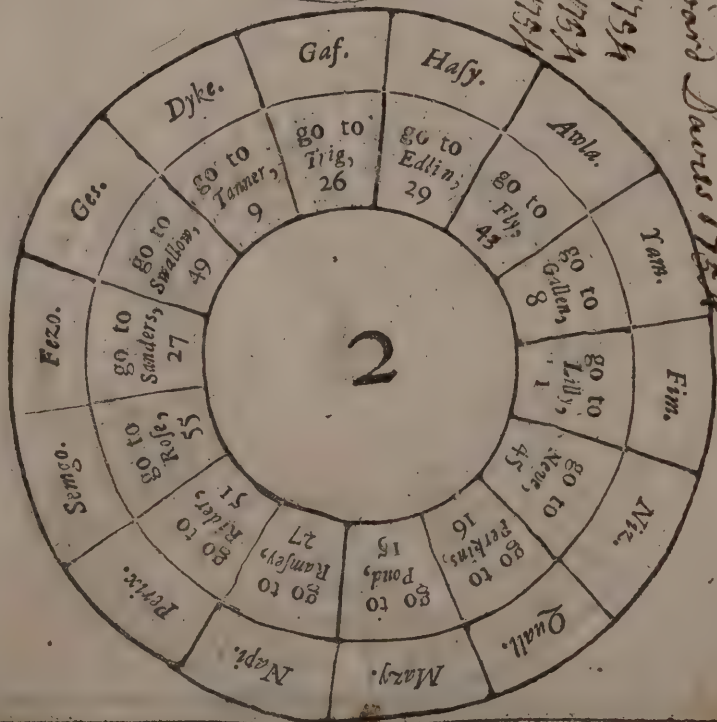 Gaf.
go to
Trig,
26
Haſy.
go to
Edlin,
29
Awla.
go to
Fly,
43
Yam.
go to
Gallen,
8
Fim.
go to
Lilly,
1
Niz.
go to
Neve,
45
Quall.
go to
Perkins,
16
Mazy.
go to
Pond,
15
Napi.
go to
Ramſey,
27
Perix.
go to
Rider,
51
Semgo.
go to
Roſe,
55
Fezo.
go to
Sanders,
27
Ges.
go to
Swallow,
49
Dyke.
go to
Tanner,
9
2
1754
1754
1754